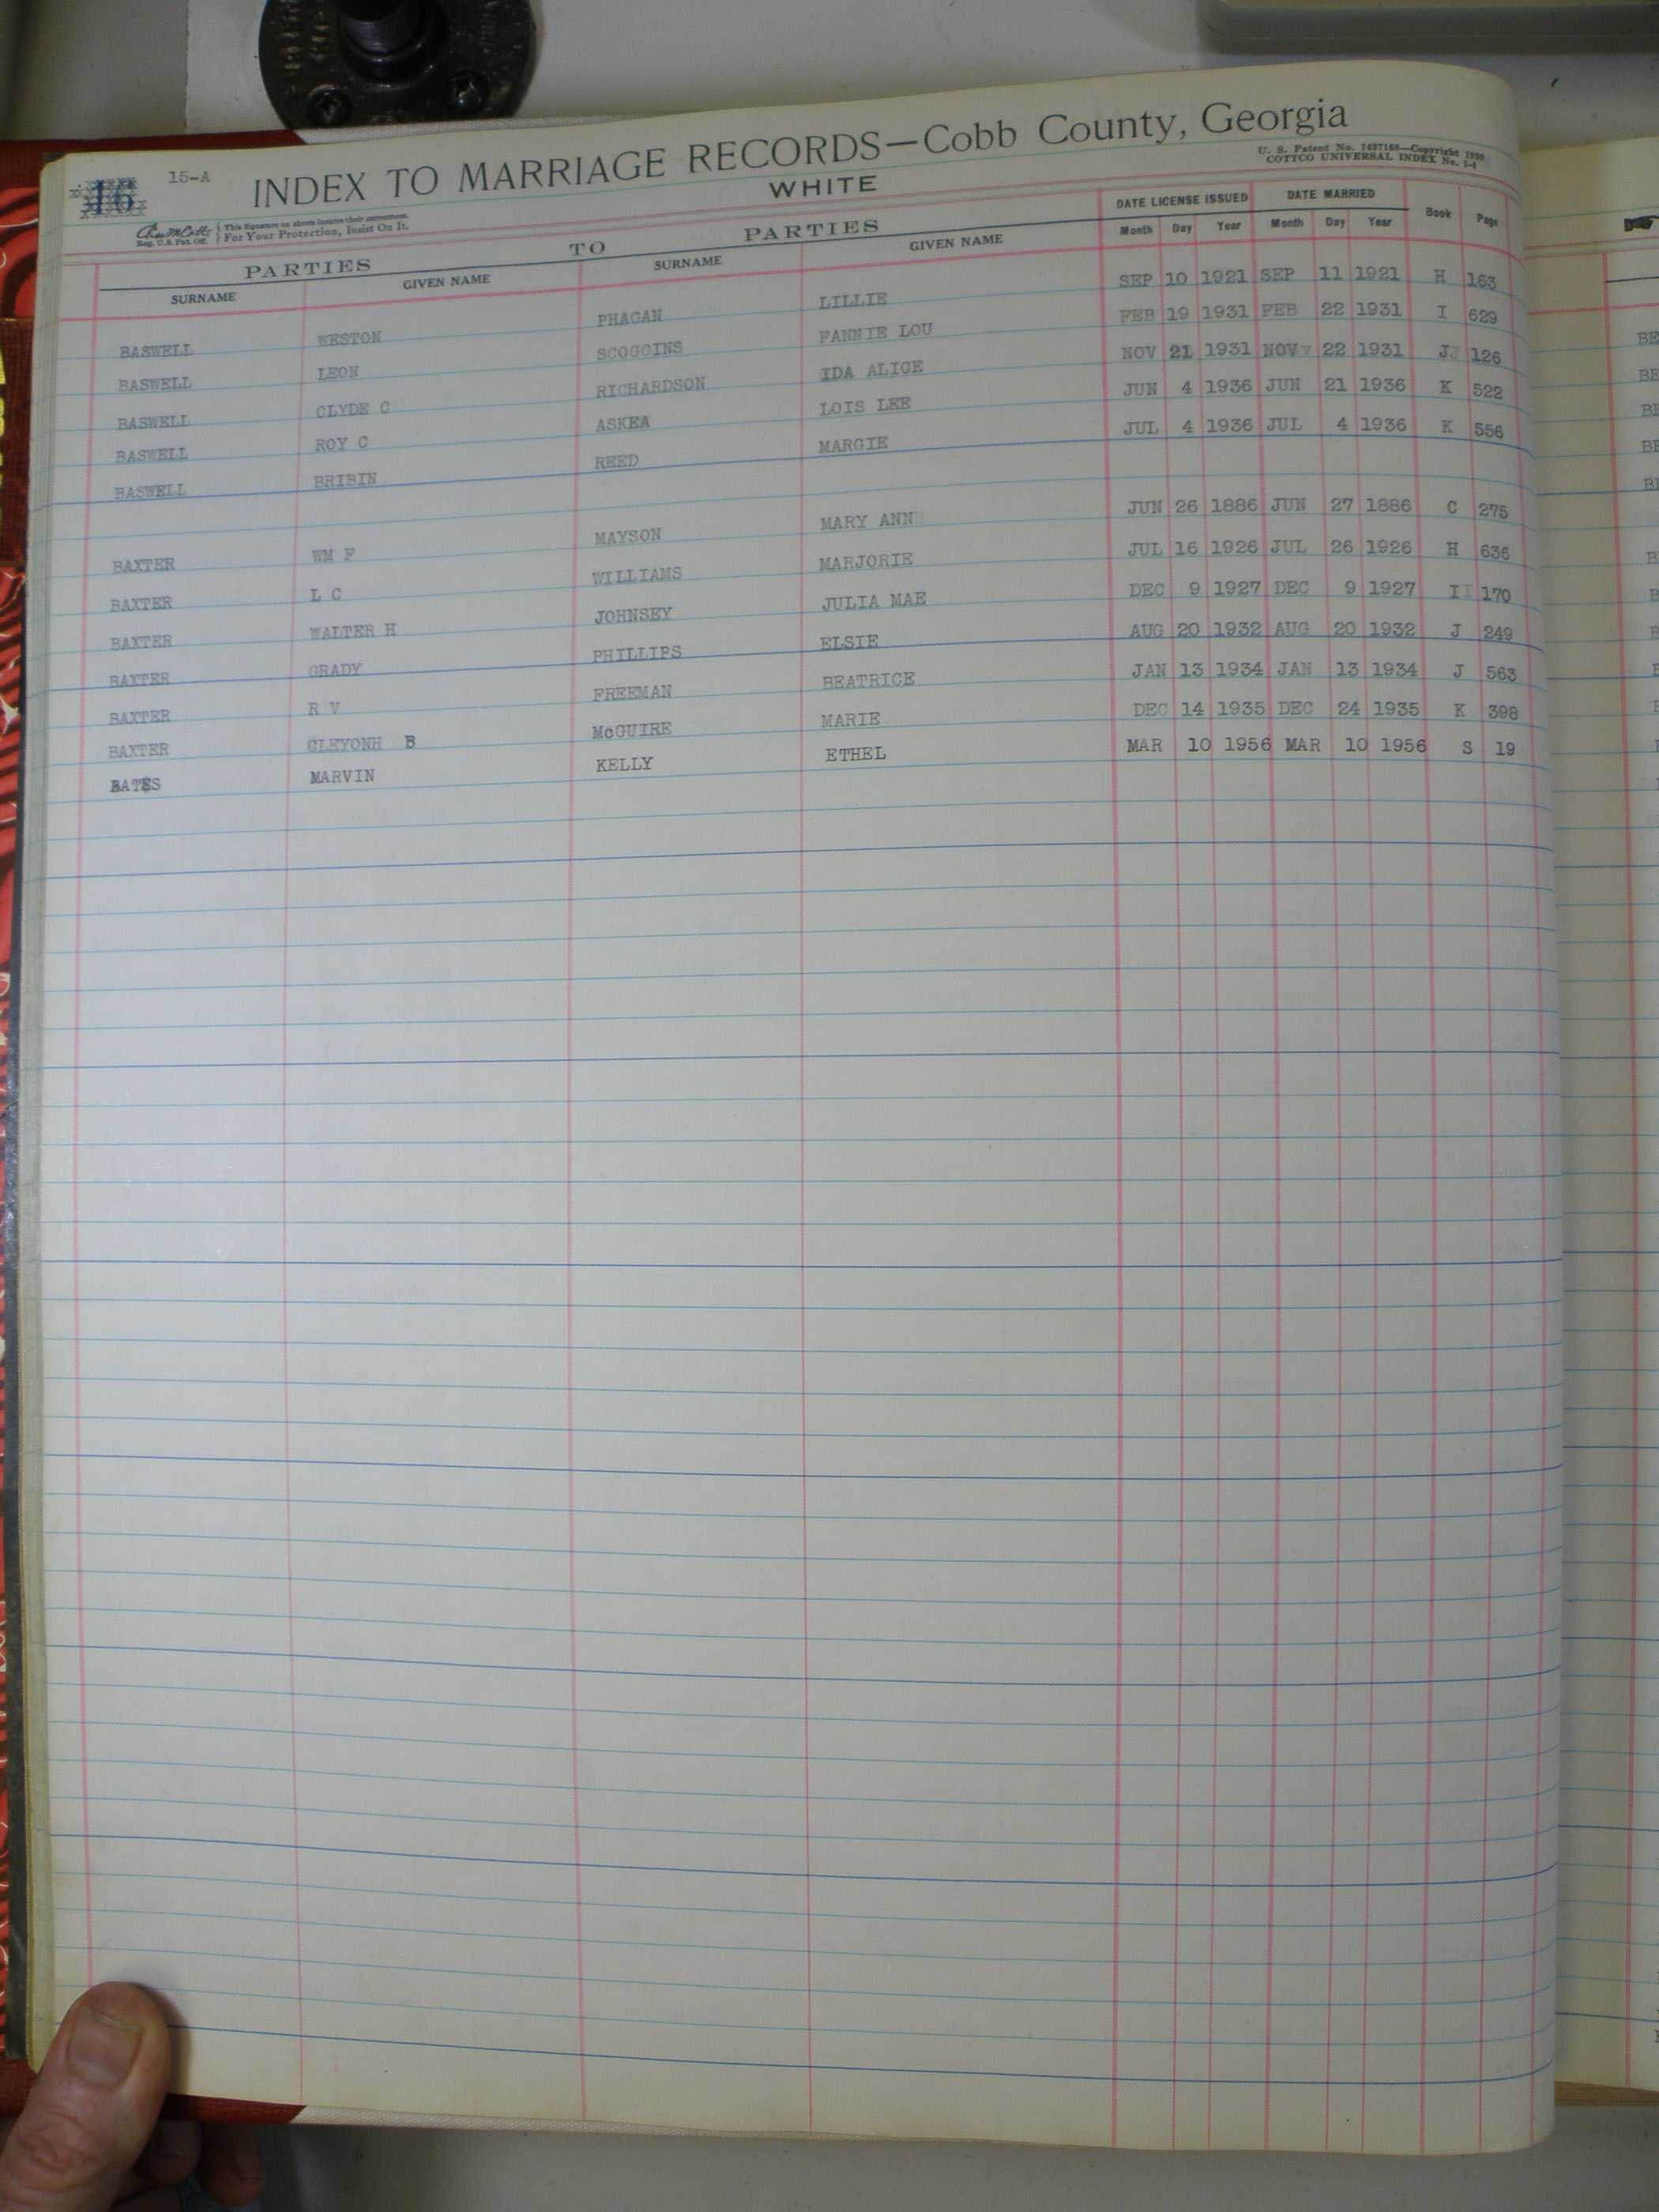 15-A
INDEX TO MARRIAGE RECORDS—Cobb County, Georgia
WHITE
U. S. Patent No. 1437168—Copyright 1930
COTTCO UNIVERSAL INDEX No. 1-4
Reg. U.S. Pat. Off. This Signature on sheets insures their correctness. For Your Protection, Insist On It.
PARTIES TO PARTIES DATE LICENSE ISSUED DATE MARRIED Book Page
SURNAME GIVEN NAME SURNAME GIVEN NAME Month Day Year Month Day Year
BASWELL WESTON PHAGAN LILLIE SEP 10 1921 SEP 11 1921 H 163
BASWELL LEON SCOGGINS FANNIE LOU FEB 19 1931 FEB 22 1931 I 629
BASWELL CLYDE C RICHARDSON IDA ALICE NOV 21 1931 NOV 22 1931 J 126
BASWELL ROY C ASKEA LOIS LEE JUN 4 1936 JUN 21 1936 K 522
BASWELL BRIBIN REED MARGIE JUL 4 1936 JUL 4 1936 K 556
BAXTER WM F MAYSON MARY ANN JUN 26 1886 JUN 27 1886 C 275
BAXTER L C WILLIAMS MARJORIE JUL 16 1926 JUL 26 1926 H 636
BAXTER WALTER H JOHNSEY JULIA MAE DEC 9 1927 DEC 9 1927 I 170
BAXTER GRADY PHILLIPS ELSIE AUG 20 1932 AUG 20 1932 J 249
BAXTER R V FREEMAN BEATRICE JAN 13 1934 JAN 13 1934 J 563
BAXTER CLEYONH B McGUIRE MARIE DEC 14 1935 DEC 24 1935 K 398
BATES MARVIN KELLY ETHEL MAR 10 1956 MAR 10 1956 S 19